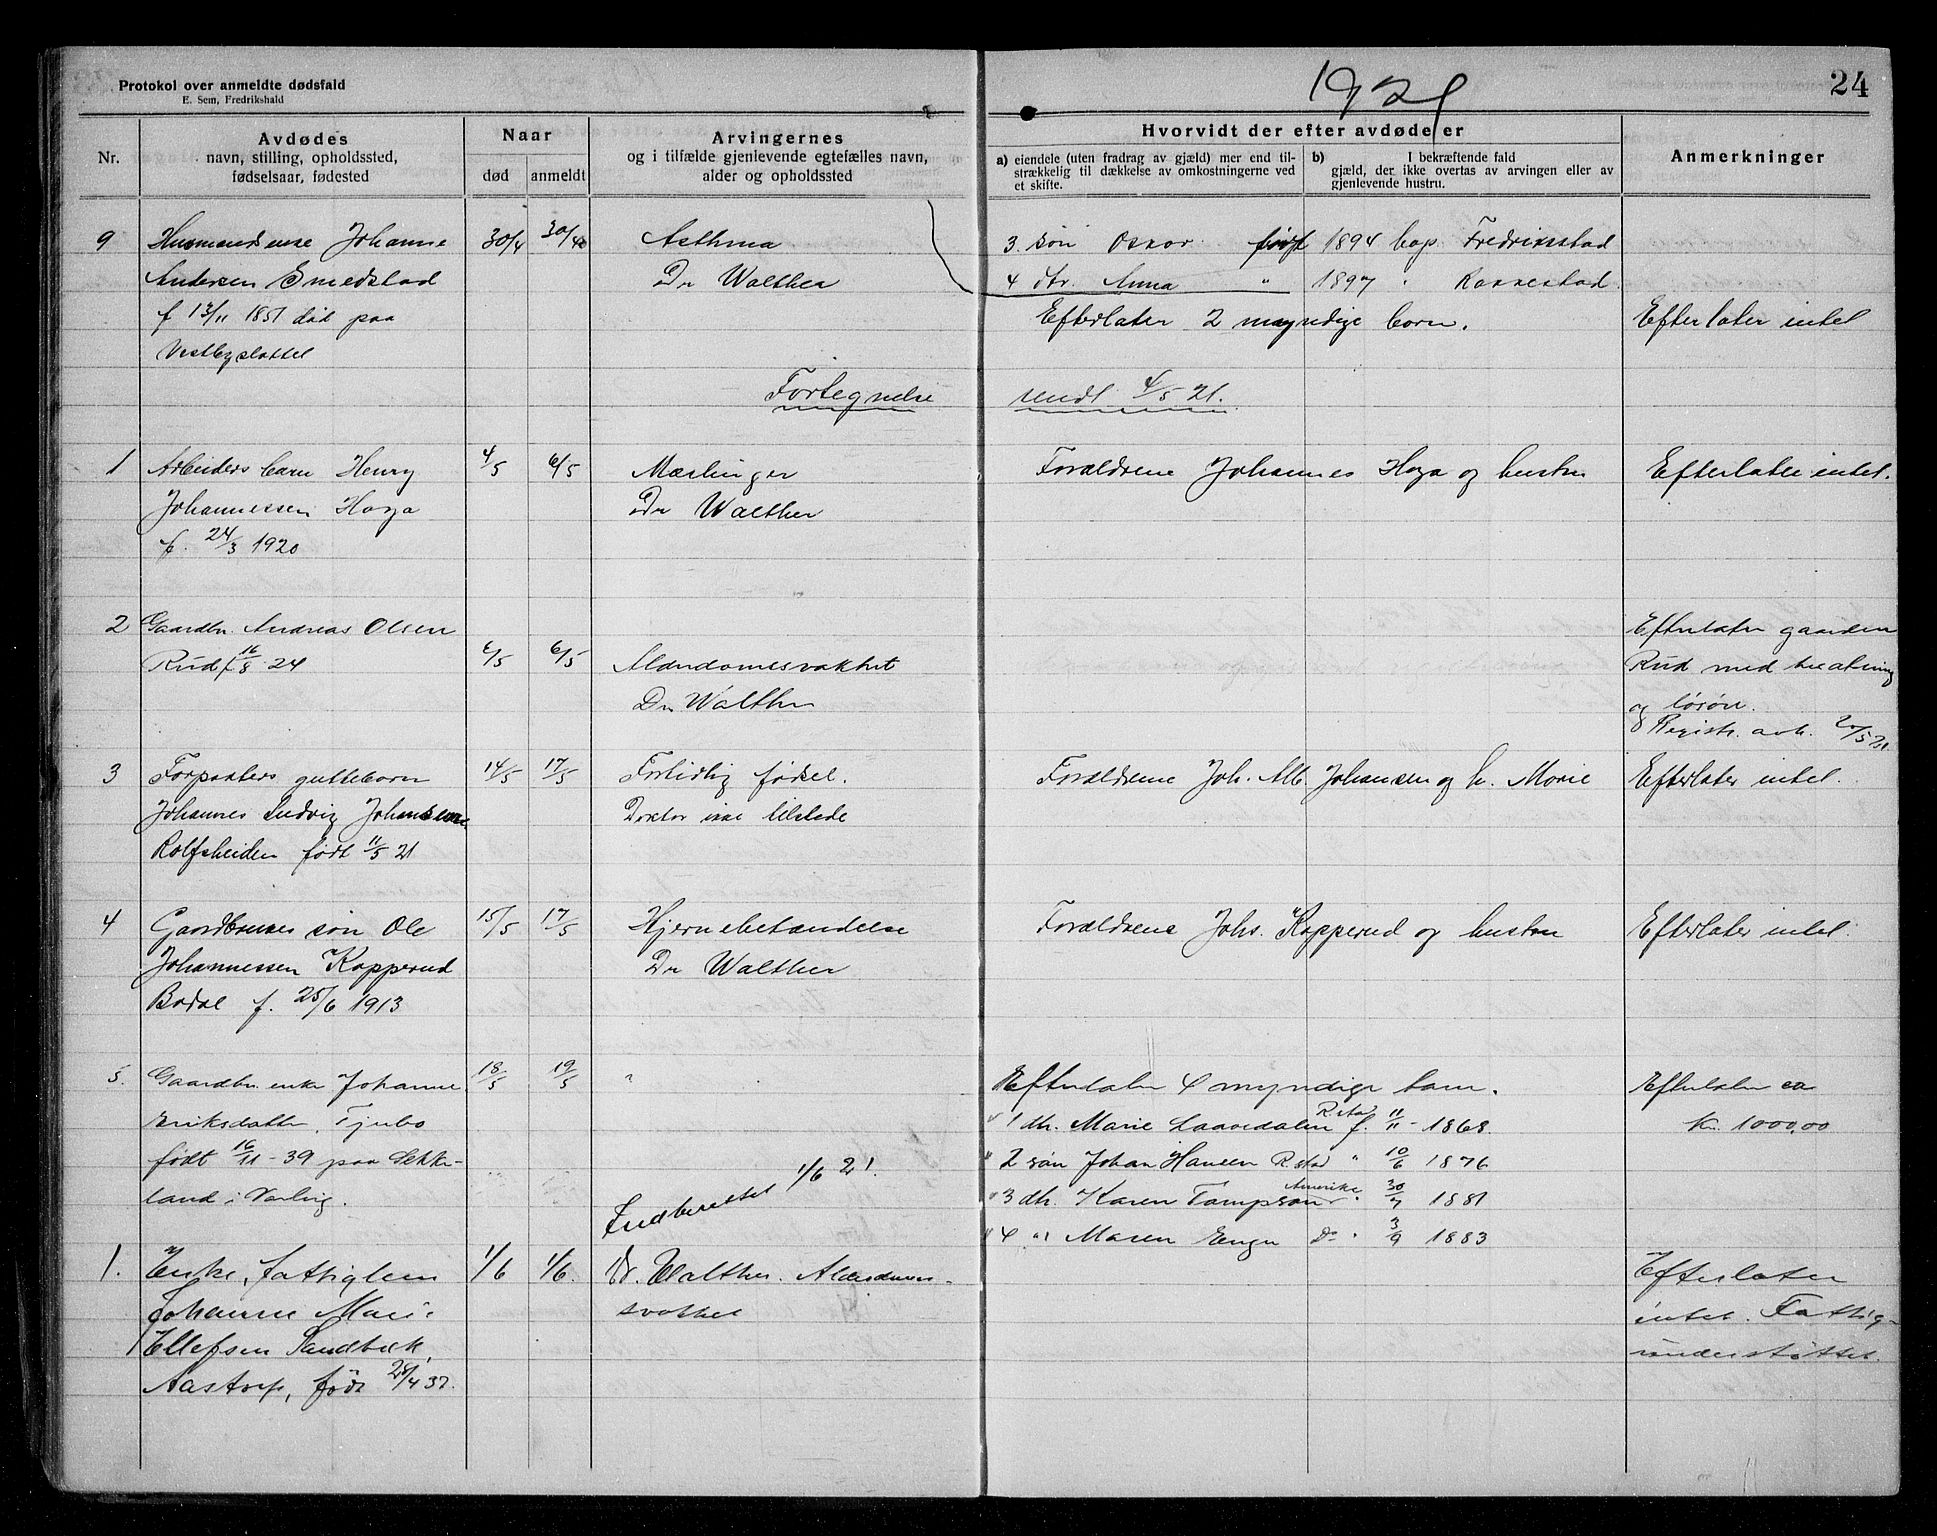 Protokol over anmeldte dødsfald
E. Sem, Fredrikshald
1921
24
Nr.
Avdødes
navn, stilling, opholdssted,
fødselsaar, fødested
Naar
død
anmeldt
Arvingernes
og i tilfælde gjenlevende egtefælles navn,
alder og opholdssted
Hvorvidt der efter avdøde er
a) eiendele (uten fradrag av gjæld) mer end til-
strækkelig til dækkelse av omkostningerne ved
et skifte.
b) I bekræftende fald
gjæld, der ikke overtas av arvingen eller av
gjenlevende hustru.
Anmerkninger
9 Husmandsenke Johanne 30/4 30/4 Asthma 3. søn Oskar født 1894 bop. Fredriksstad
Andersen Smedstad Dr Walther 4 dtr. Anna " 1897 " Rakkestad.
f 13/11 1851 død paa Efterlater 2 myndige børn. Efterlater intet
Vestbyslottet
Fortegnelse sendt 4/5 21.
1 Arbeiders barn Henry 4/5 6/5 Mæslinger Forældrene Johannes Haga og hustru Efterlater intet.
Johannessen Haga Dr Walther
f. 24/3 1920
2 Gaardbr. Andreas Olsen Efterlater gaarden
Rud f 16/8 24 6/5 6/5 Alderdomssvakhet Rud med besætning
Dr Walther og løsøre.
Registr. avh. 20/5 21.
3 Forpakters guttebarn 14/5 17/5 Fortidlig fødsel. Forældrene Joh. Alb. Johansen og h. Marie Efterlater intet.
Johannes Ludvig Johansen Doktor ikke tilstede
Rolfsheiden født 11/5 21
4 Gaardbrukers søn Ole 15/5 17/5 Hjernebetændelse Forældrene Johs. Kopperud og hustru Efterlater intet.
Johannessen Kopperud Dr Walther
Bodal f. 25/6 1913
5. Gaardbr. enke Johanne 18/5 19/5 " Efterlater 4 myndige barn. Efterlater ca
Eriksdatter, Tjubo " 1 dtr. Marie Laavedalen R.stad f. 11/11 - 1868. Kr. 1000,00
født 16/11 - 39 paa " 2 søn Johan Hansen R.stad " 10/6 1876
land i Varteig. Indberettet 1/6 21. " 3 dtr. Karen Tampson Amerika " 30/7 1881
" 4 " Maren Engen Do " 3/9 1883
1. Enke, fattiglem 1/6 1/6. Dr. Walther. Alderdoms- Efterlater
Johanne Marie svakhet intet. Fattig-
Ellefsen Sandbæk, understøttet.
Aastorp, født 28/4 37.